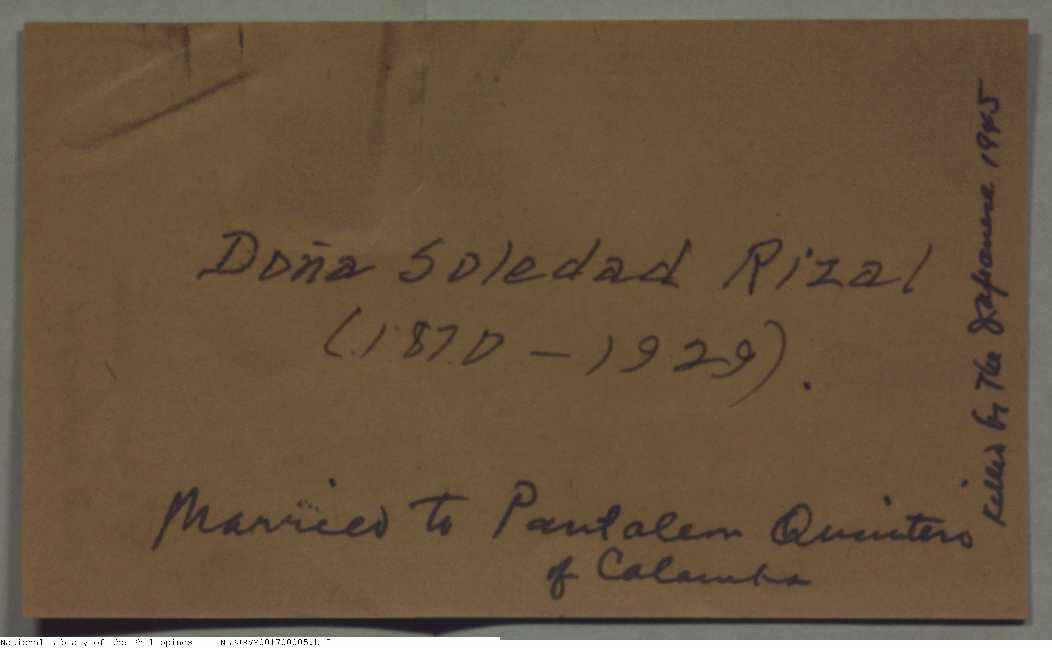 Doña Soledad Rizal
(1870 - 1929).
Married to Pantaleon Quintero
of Calamba
Killed by the Japanese 1945
National Library of the Philippines